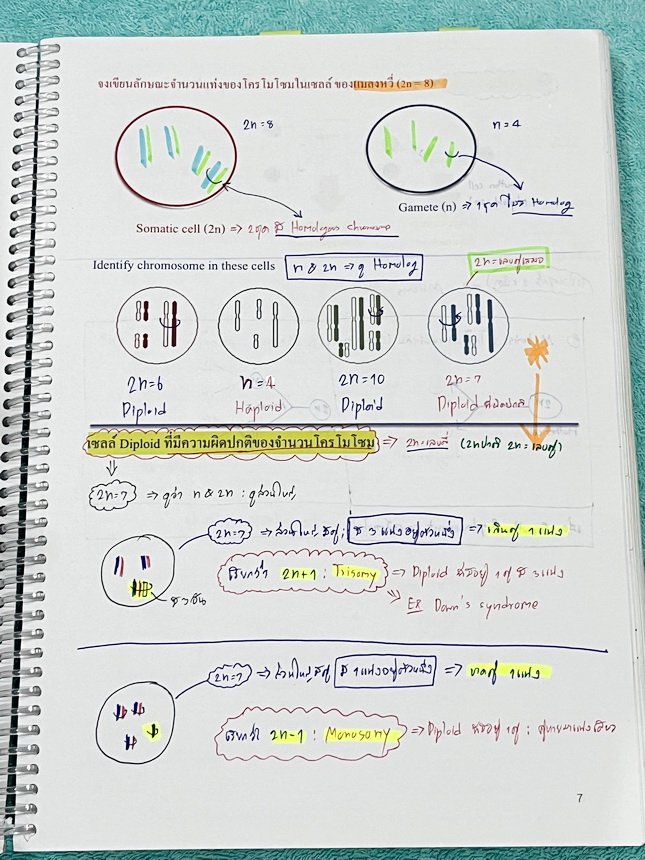 จงเขียนลักษณะจำนวนแท่งของโครโมโซมในเซลล์ ของแมลงหวี่ (2n = 8)
2n = 8
n = 4
Gamete (n) ⇒ 1ชุด ไม่มี Homolog
Somatic cell (2n) ⇒ 2ชุด มี Homologous chromosome
Identify chromosome in these cells
n & 2n ⇒ ดู Homolog
2n = เลขคู่เสมอ
2n = 6
n = 4
2n = 10
2n = 7
Diploid
Haploid
Diploid
Diploid ที่ผิดปกติ
เซลล์ Diploid ที่มีความผิดปกติของจำนวนโครโมโซม ⇒ 2n = เลขคี่ (2n ปกติ 2n = เลขคู่)
2n = 7 ⇒ ดูว่า n & 2n : ดูส่วนใหญ่
2n = 7 ⇒ ส่วนใหญ่มีคู่ : มี 3 แท่งอยู่ตัวหนึ่ง ⇒ เกินคู่ 1 แท่ง
เรียกว่า 2n+1 : Trisomy ⇒ Diploid ที่มีอยู่ 1 คู่ มี 3 แท่ง
มี 3 อัน
EX Down's syndrome
2n = 7 ⇒ ส่วนใหญ่มีคู่ มี 1 แท่งอยู่ตัวหนึ่ง ⇒ ขาดคู่ 1 แท่ง
เรียกว่า 2n-1 : Monosomy ⇒ Diploid ที่มีอยู่ 1 คู่ :
7